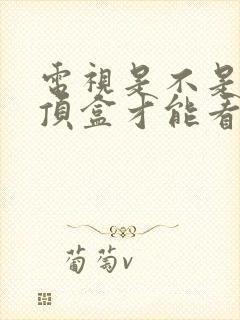 電視是不是
頂盒才能看
葡萄v